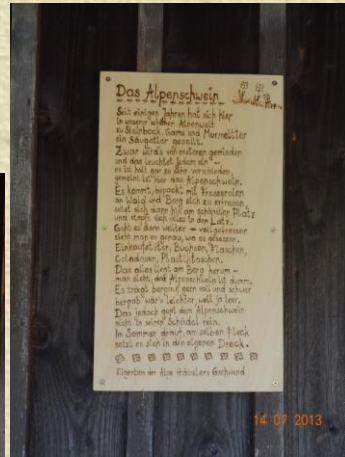 Das Alpenschwein
Seit einigen Jahren hat sich hier
in unserer schönen Alpenwelt
zu Steinbock, Gams und Murmeltier
ein Säugetier gesellt.
Zwar wird's von ersteren gemieden
und das leuchtet jedem ein –
es ist halt gar so sehr verschieden,
gemeint ist hier das Alpenschwein.
Es kommt, bepackt mit Fressereien
an Wald und Berg sich zu erfreuen,
setzt sich dann hin am schönsten Platz
und stopft sich alles in den Latz.
Geht es dann weiter – vollgefressen
sieht man es genau, wo es gesessen.
Einkaufstüten, Büchsen, Flaschen,
Coladosen, Plastiktaschen.
Das alles liegt am Berg herum –
man sieht, das Alpenschwein ist dumm.
Es trägt bergauf gern voll und schwer
bergab wär's leichter, weil ja leer.
Das jedoch geht dem Alpenschwein
nicht in seinen Schädel rein.
Im Sommer drauf, am selben Fleck
setzt es sich in den eigenen Dreck.
Eigentum der Alpe Gschwend
14 07 2013